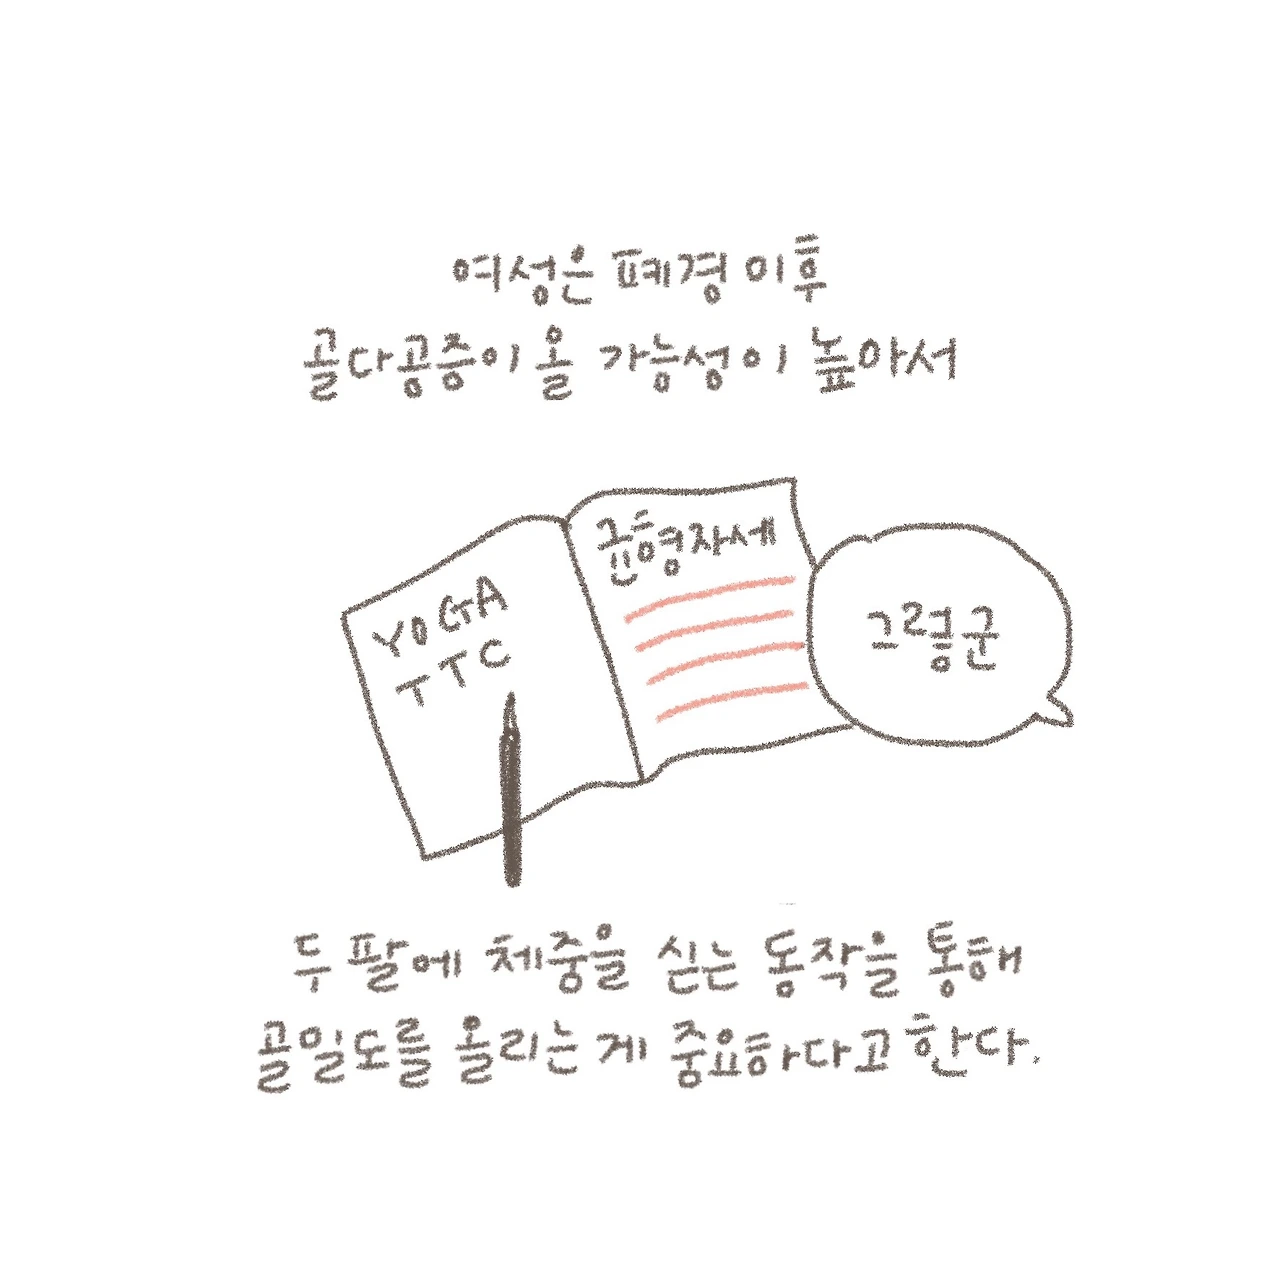 여성은 폐경 이후
골다공증이 올 가능성이 높아서
YOGA
TTC
균형자세
그렇군
두 팔에 체중을 싣는 동작을 통해
골밀도를 올리는 게 중요하다고 한다.